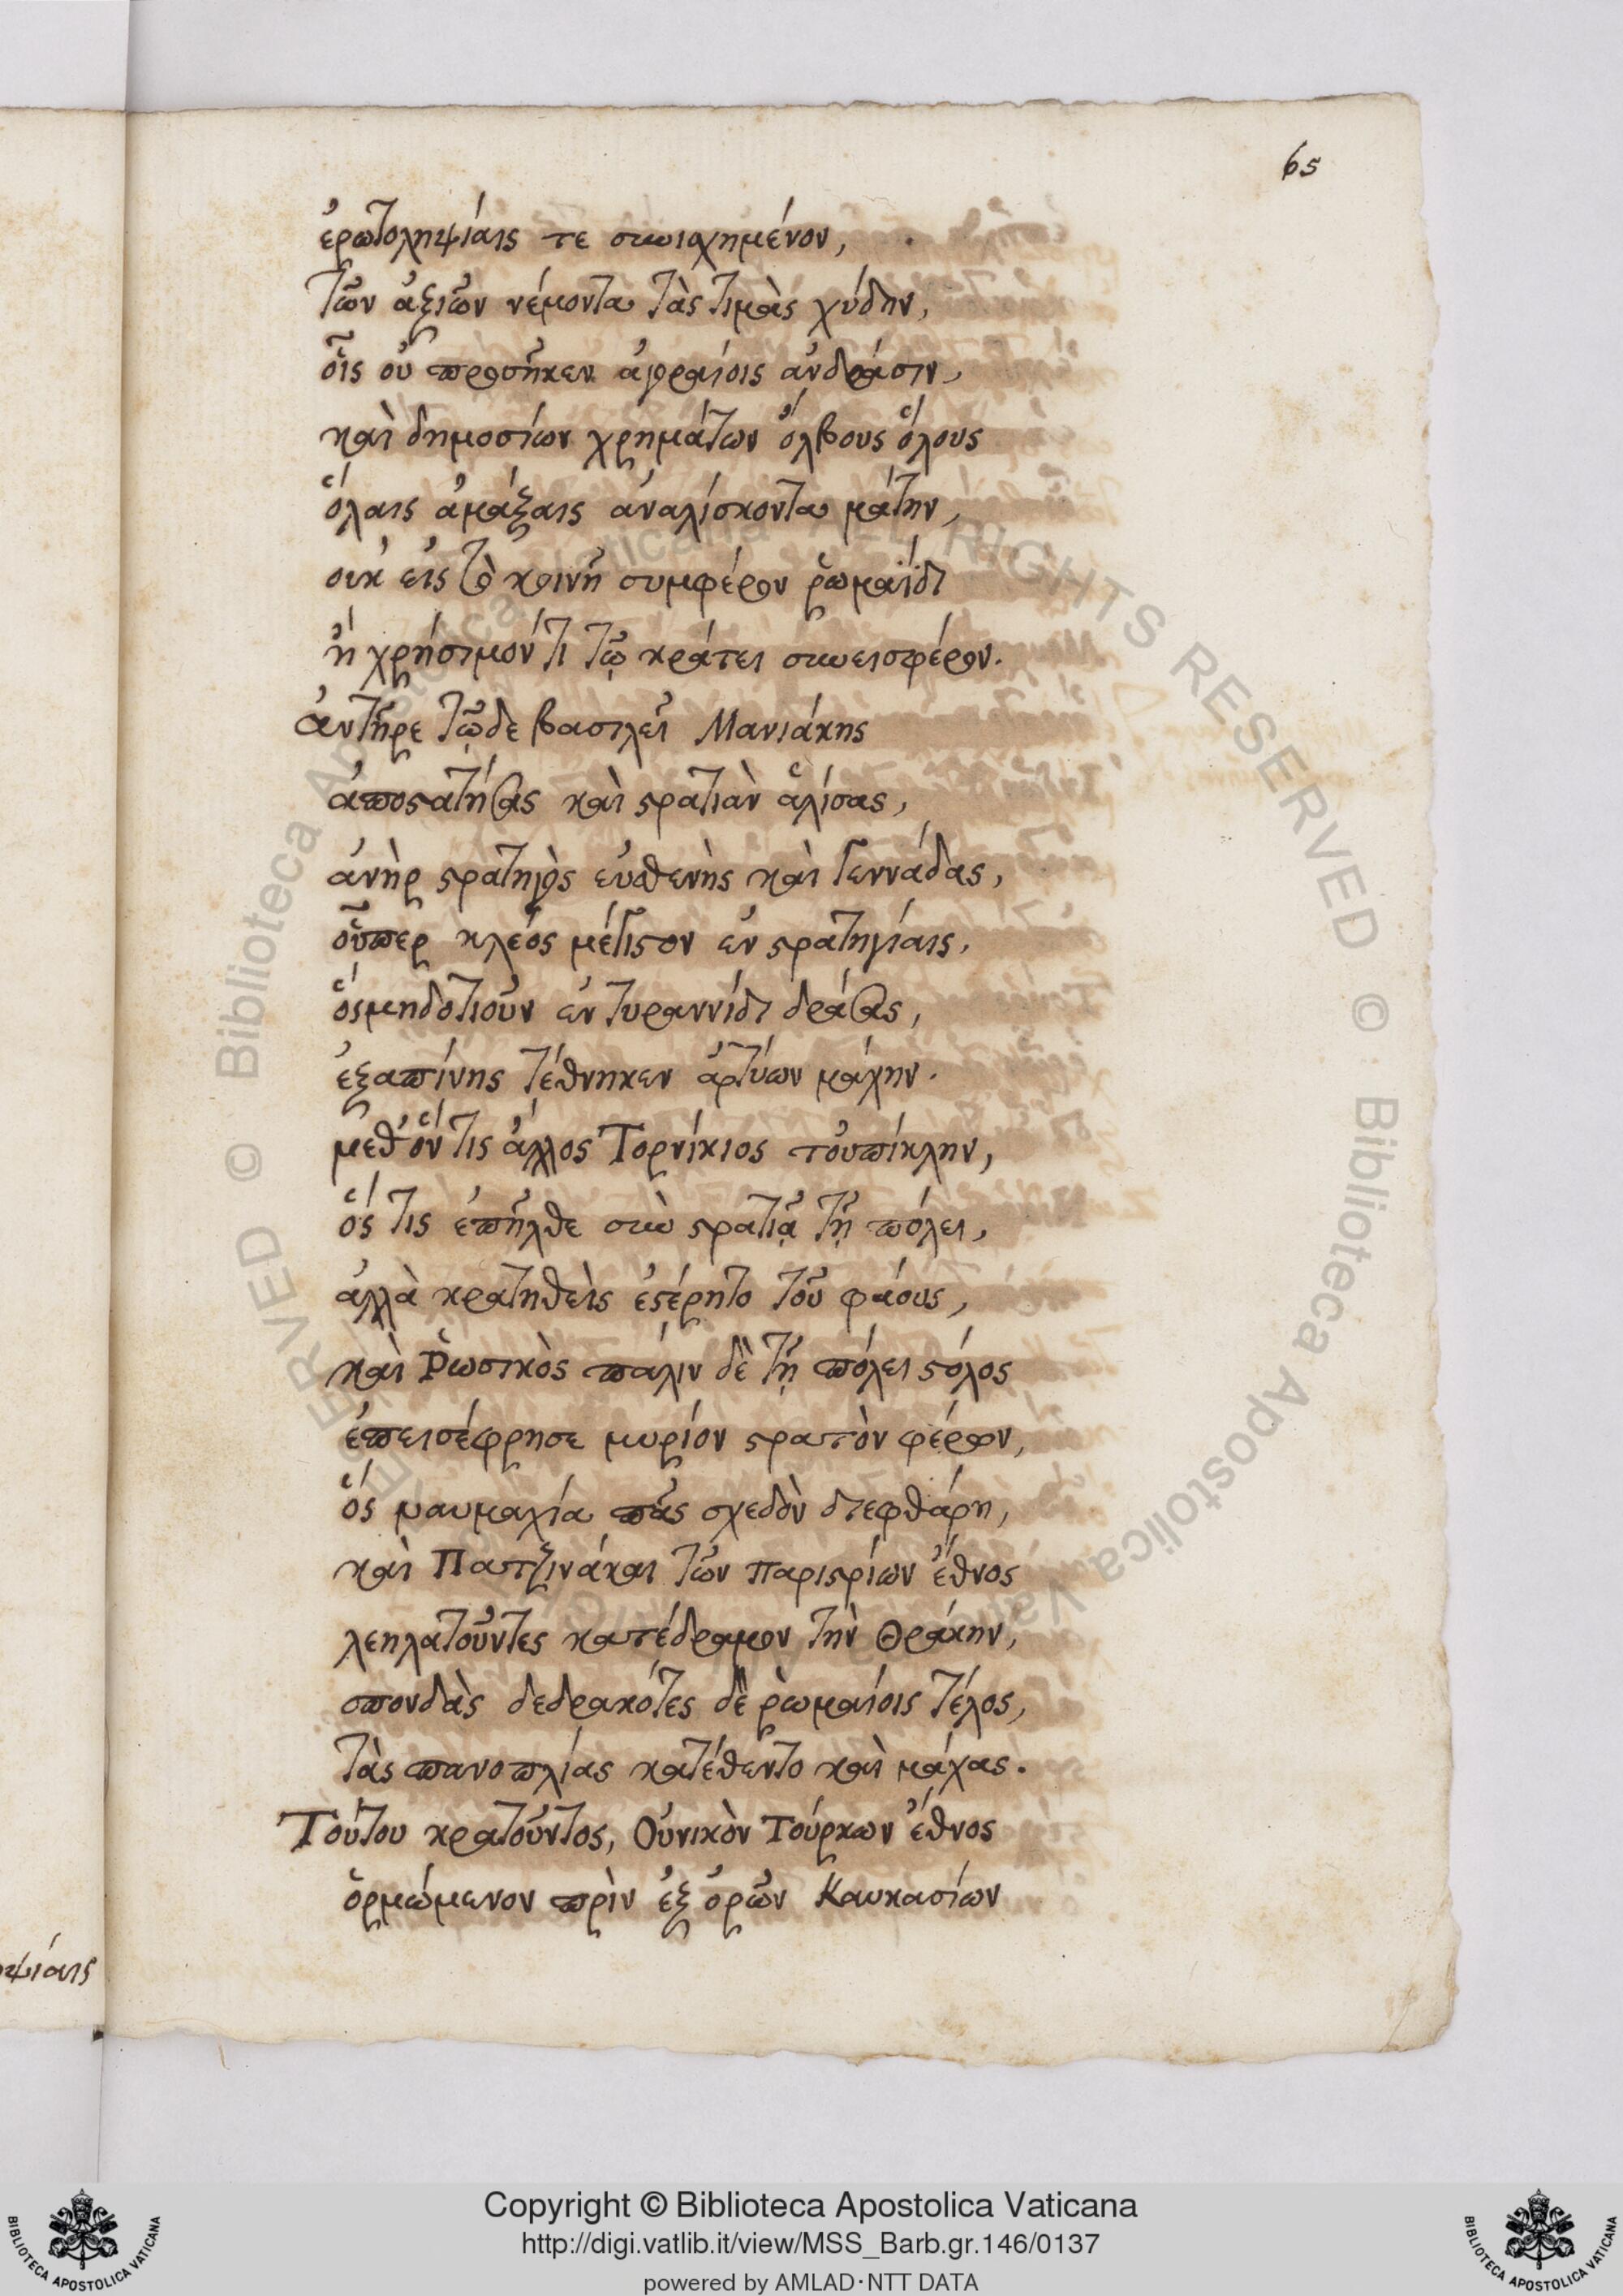 65
ἐρωτοληψίαις τε συνισχημένον,
τῶν ἀξιῶν νέμοντα τὰς τιμὰς χύδην,
οἷς οὐ προσῆκεν ἀγοραίοις ἀνδράσιν,
καὶ δημοσίων χρημάτων ὄλβους ὅλους
ὅλαις ἁμάξαις ἀναλίσκοντα μάτην,
οὐκ εἰς τὸ κοινῇ συμφέρον ῥωμαΐδι
ἢ χρήσιμόν τι τῷ κράτει συνεισφέρον.
ἀντῆρε τῷδε βασιλεῖ Μανιάκης
ἀποστατήσας καὶ στρατιὰν ἁλίσας,
ἀνὴρ στρατηγὸς εὐσθενὴς καὶ γεννάδας,
οὗπερ κλέος μέγιστον ἐν στρατηγίαις,
ὃς μηδοτιοῦν ἐν τυραννίδι δράσας,
ἐξαπίνης τέθνηκεν ἀρτύων μάχην.
μεθ' ὅν τις ἄλλος Τορνίκιος τοὐπίκλην,
ὅς τις ἐπῆλθε σὺν στρατιᾷ τῇ πόλει,
ἀλλὰ κρατηθεὶς ἐστέρητο τοῦ φάους,
καὶ Ῥωσικὸς πάλιν δὲ τῇ πόλει στόλος
ἐπεισέφρησε μυρίον στρατὸν φέρων,
ὃς ναυμαχία πᾶς σχεδὸν διεφθάρη,
καὶ Πατζινάκαι τῶν παριστρίων ἔθνος
λεηλατοῦντες κατέδραμον τὴν Θράκην,
σπονδὰς δεδρακότες δὲ ῥωμαίοις τέλος,
τὰς πανοπλίας κατέθεντο καὶ μάχας.
Τούτου κρατοῦντος, Οὐνικὸν Τούρκων ἔθνος
ὁρμώμενον πρὶν ἐξ ὀρῶν Καυκασίων
ψίαις
Copyright © Biblioteca Apostolica Vaticana
http://digi.vatlib.it/view/MSS_Barb.gr.146/0137
powered by AMLAD·NTT DATA